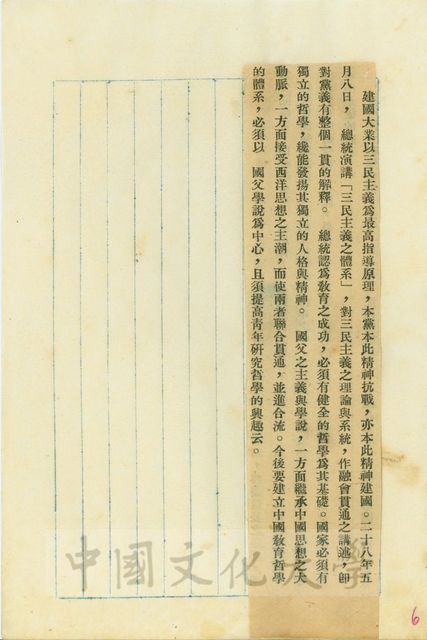 建國大業以三民主義爲最高指導原理，本黨本此精神抗戰，亦本此精神建國。二十八年五
月八日，　總統演講「三民主義之體系」，對三民主義之理論與系統，作融會貫通之講述，卽
對黨義有整個一貫的解釋。　總統認爲敎育之成功，必須有健全的哲學爲其基礎。國家必須有
獨立的哲學，纔能發揚其獨立的人格與精神。　國父之主義與學說，一方面繼承中國思想之大
動脈，一方面接受西洋思想之主潮，而使兩者聯合貫通，並進合流。今後要建立中國敎育哲學
的體系，必須以　國父學說爲中心，且須提高靑年硏究哲學的興趣云。
中國文化大學
6